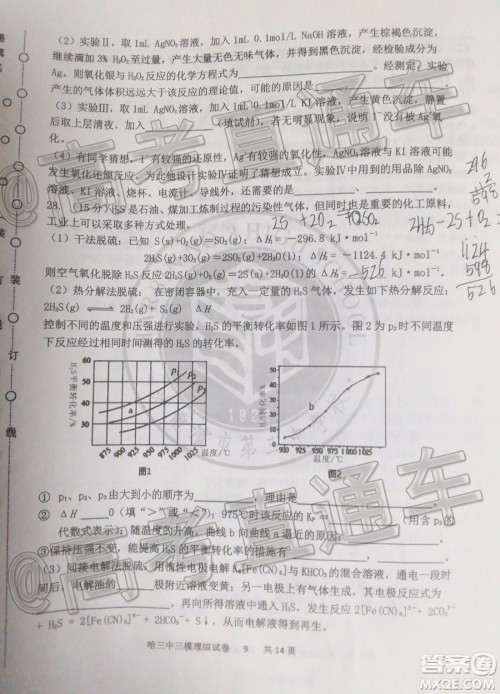 （2）实验Ⅱ，取 1mL AgNO₃ 溶液加入 1mL 0.1mol/L NaOH 溶液，产生棕褐色沉淀，
继续滴加 3% H₂O₂ 至过量，产生大量无色无味气体，并得到黑色沉淀，经实验确定为
Ag，则氧化银与 H₂O₂ 反应的化学方程式为____________。经测定，
产生的气体体积远远大于该反应的理论值，可能的原因____________。
（3）实验Ⅲ，取 1mL AgNO₃ 溶液，加入 1mL 0.1mol/L KI 溶液，产生黄色沉淀，静置
后取上层清夜，加入____________（填试剂），若无明显现象，说明 I⁻ 没有被 Ag⁺ 氧
化。
（4）有同学猜想，I⁻ 有较强的还原性，Ag⁺ 有较强的氧化性，AgNO₃ 溶液与 KI 溶液可能
发生氧化还原反应，并自己设计实验Ⅳ证明了猜想。实验Ⅳ中所使用的用品除 AgNO₃
溶液、KI 溶液、烧杯、电流计、导线外，还需要的有____________。
28.（15 分）H₂S 是石油、煤加工炼制过程的污染性气体，但同时也是重要的化工原料，
工业上可以采取多种方式处理。
2S+2O₂=2SO₂
（1）干法脱硫：已知 S(s)+O₂(g)=SO₂(g)； ΔH₁=-296.8 kJ•mol⁻¹
2H₂S(g)+3O₂(g)=2SO₂(g)+2H₂O(l) ΔH₂=-1124.0 kJ•mol⁻¹
则空气氧化脱除 H₂S 反应 2H₂S(g)+O₂(g)=2S(s)+2H₂O(l) ΔH₃=-526 kJ•mol⁻¹
1124
598
526
（2）热分解法脱硫：在密闭容器中，充入一定量的 H₂S 气体，发生如下热分解反应：
2H₂S(g) ⇌ 2H₂(g)+ S₂(g) ΔH
控制不同的温度和压强进行实验，H₂S 的平衡转化率如图 1 所示。图 2 为 p₂ 时不同温度
下反应经过相同时间测得的 H₂S 的转化率。
H₂S平衡转化率/%
60 50 40 30
p₁ p₂ p₃
a
875 900 925 950 975 1000 1025
温度/℃
图1
转化率/%
50 40 30 20 10 0
b
900 925 950 975 1000 1025
温度/℃
图2
① p₁、p₂、p₃ 由大到小的顺序为____________理由是____________
② ΔH____0（填“＞”或“＜”）；975℃时反应的 Kₚ=____________（用含 p₁ 的
代数式表示），随温度的升高，曲线 b 向曲线 a 逼近的原因：____________
③保持压强不变，能提高 H₂S 的平衡转化率的措施有____________
（3）间接电解法脱硫：用惰性电极电解 K₄[Fe(CN)₆]与 KHCO₃ 的混合溶液，电解一段时
间，电解池的____极附近溶液变黄；另一电极上有气体产生，该电极反应式为
____________。再向所得溶液中通入 H₂S 发生反应 2[Fe(CN)₆]³⁻+2CO₃²⁻
+ H₂S = 2[Fe(CN)₆]⁴⁻+2HCO₃⁻+S↓，从而使溶液得到再生。
哈三中三模理综试卷 9 共14页
装 订 线
@高考直通车
@高考直通车